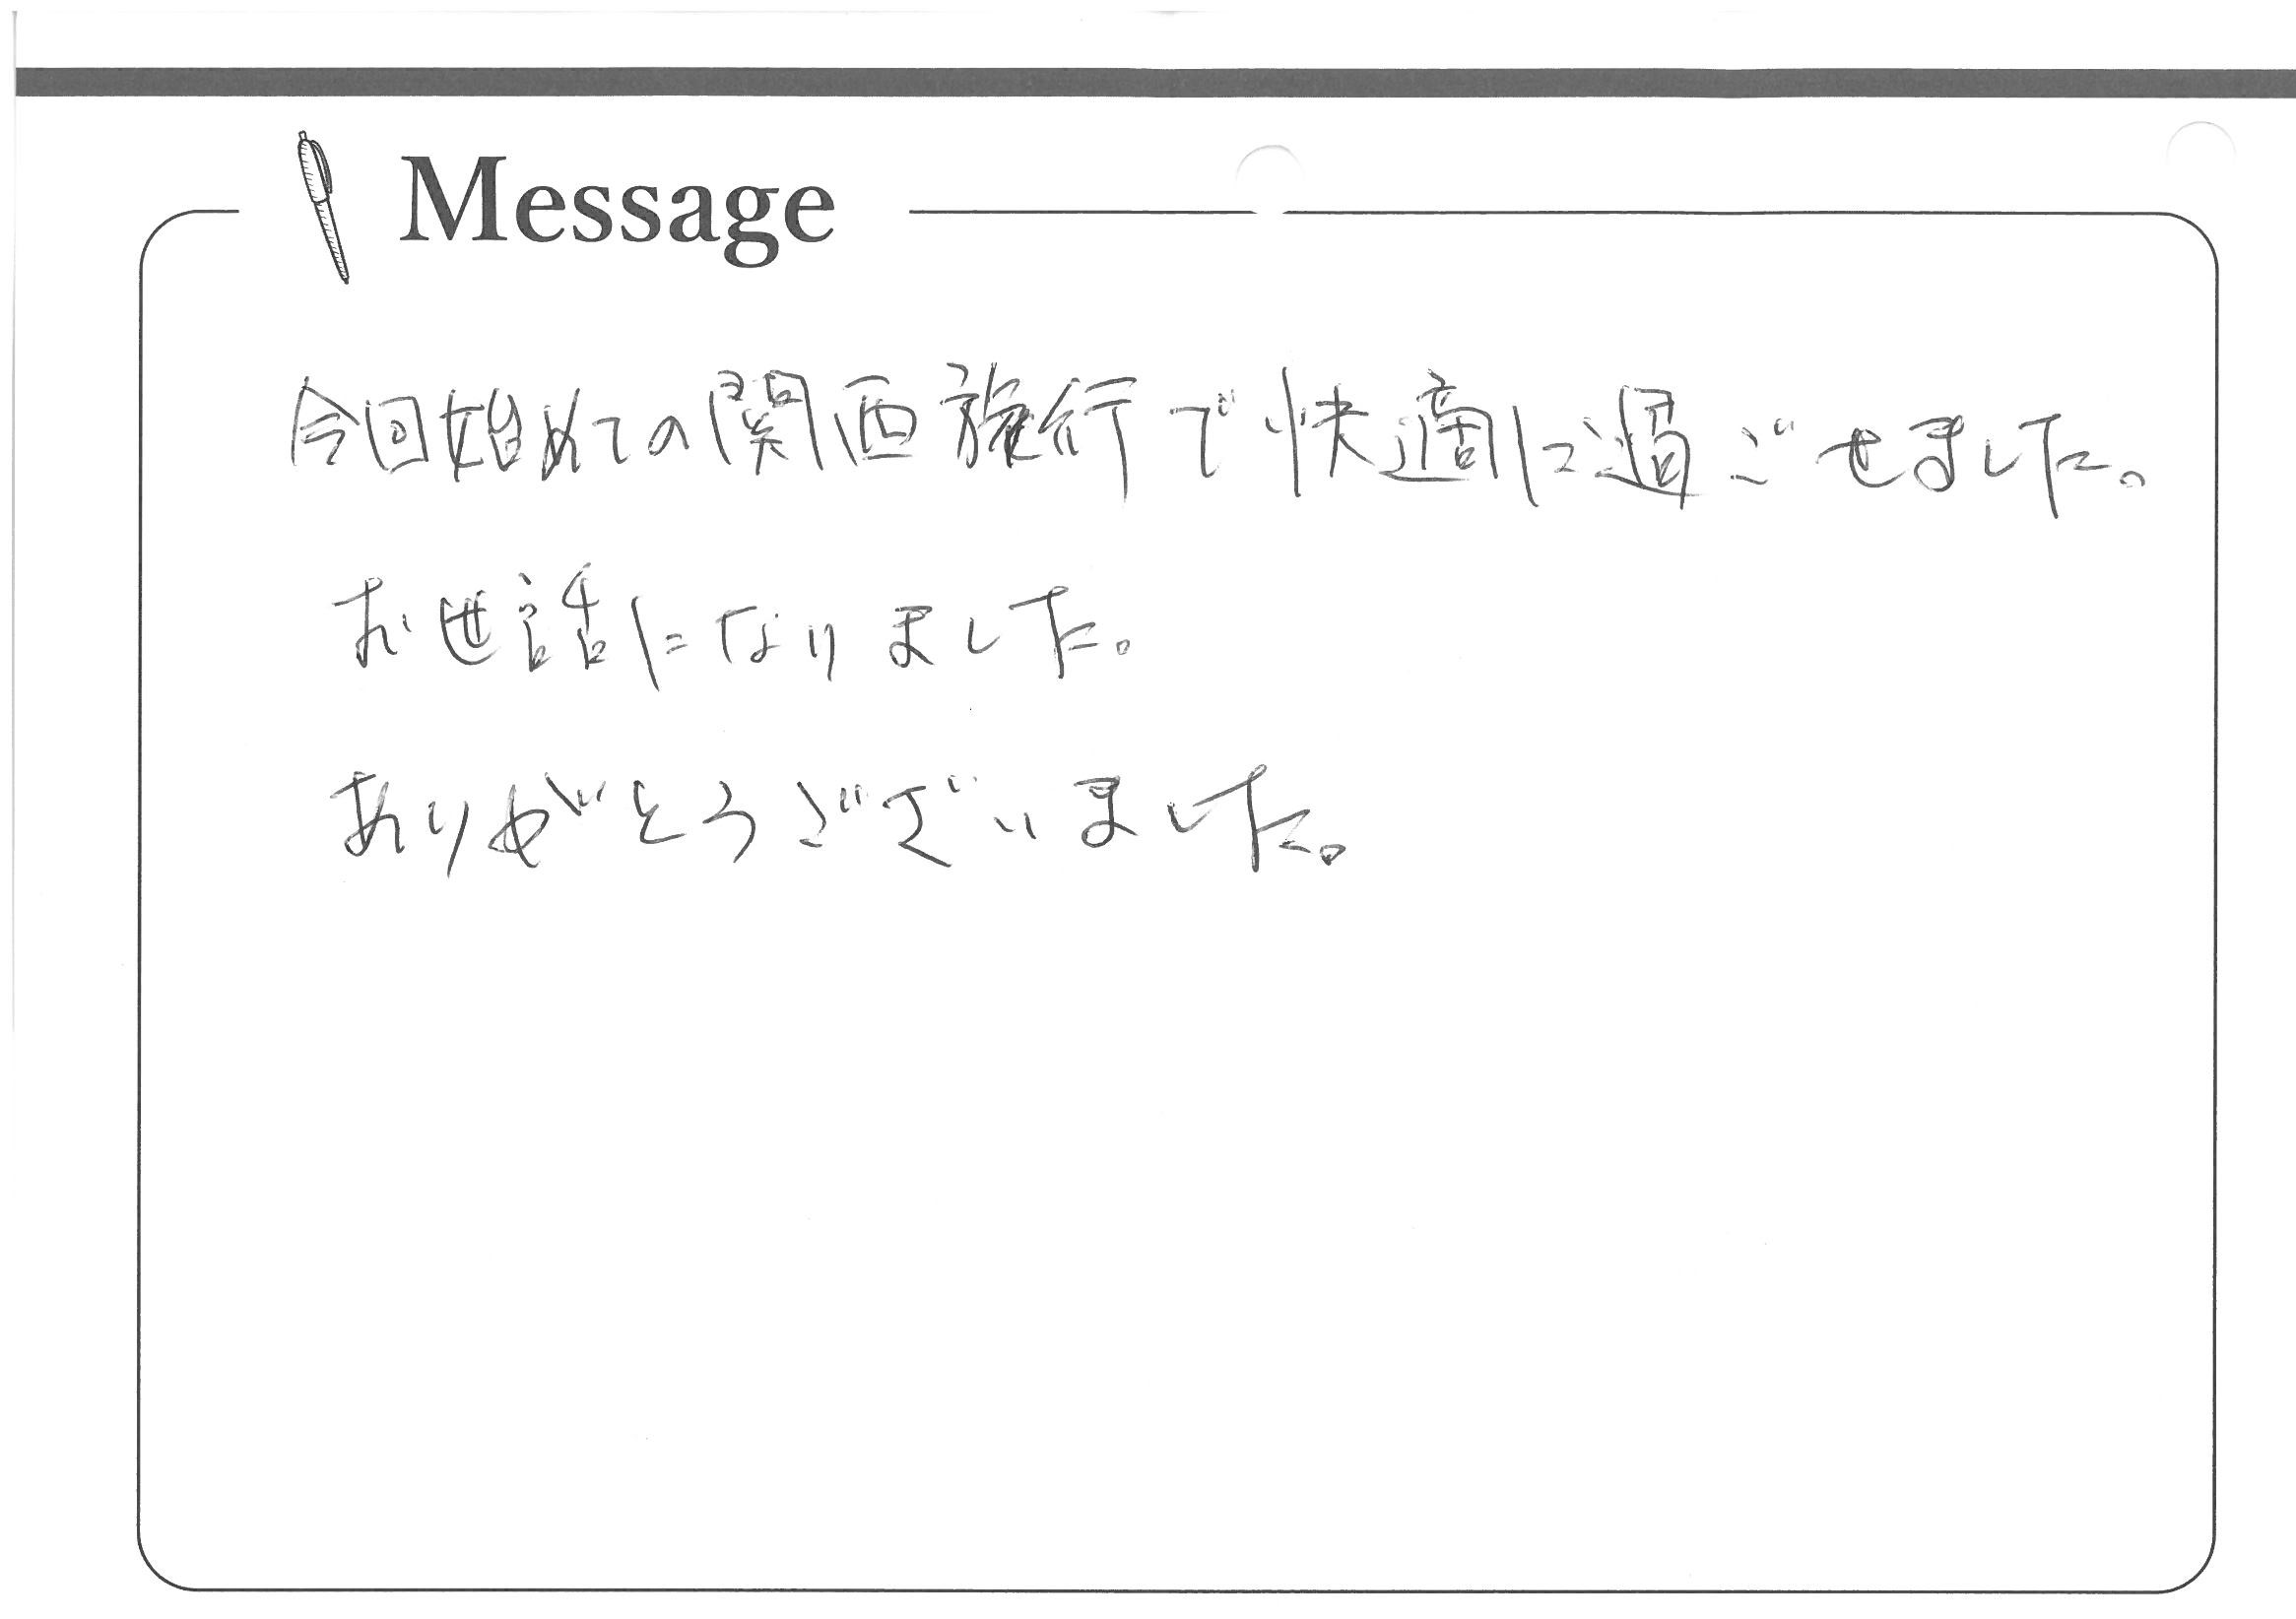 Message
今回始めての関西旅行で快適に過ごせました。
お世話になりました。
ありがとうございました。